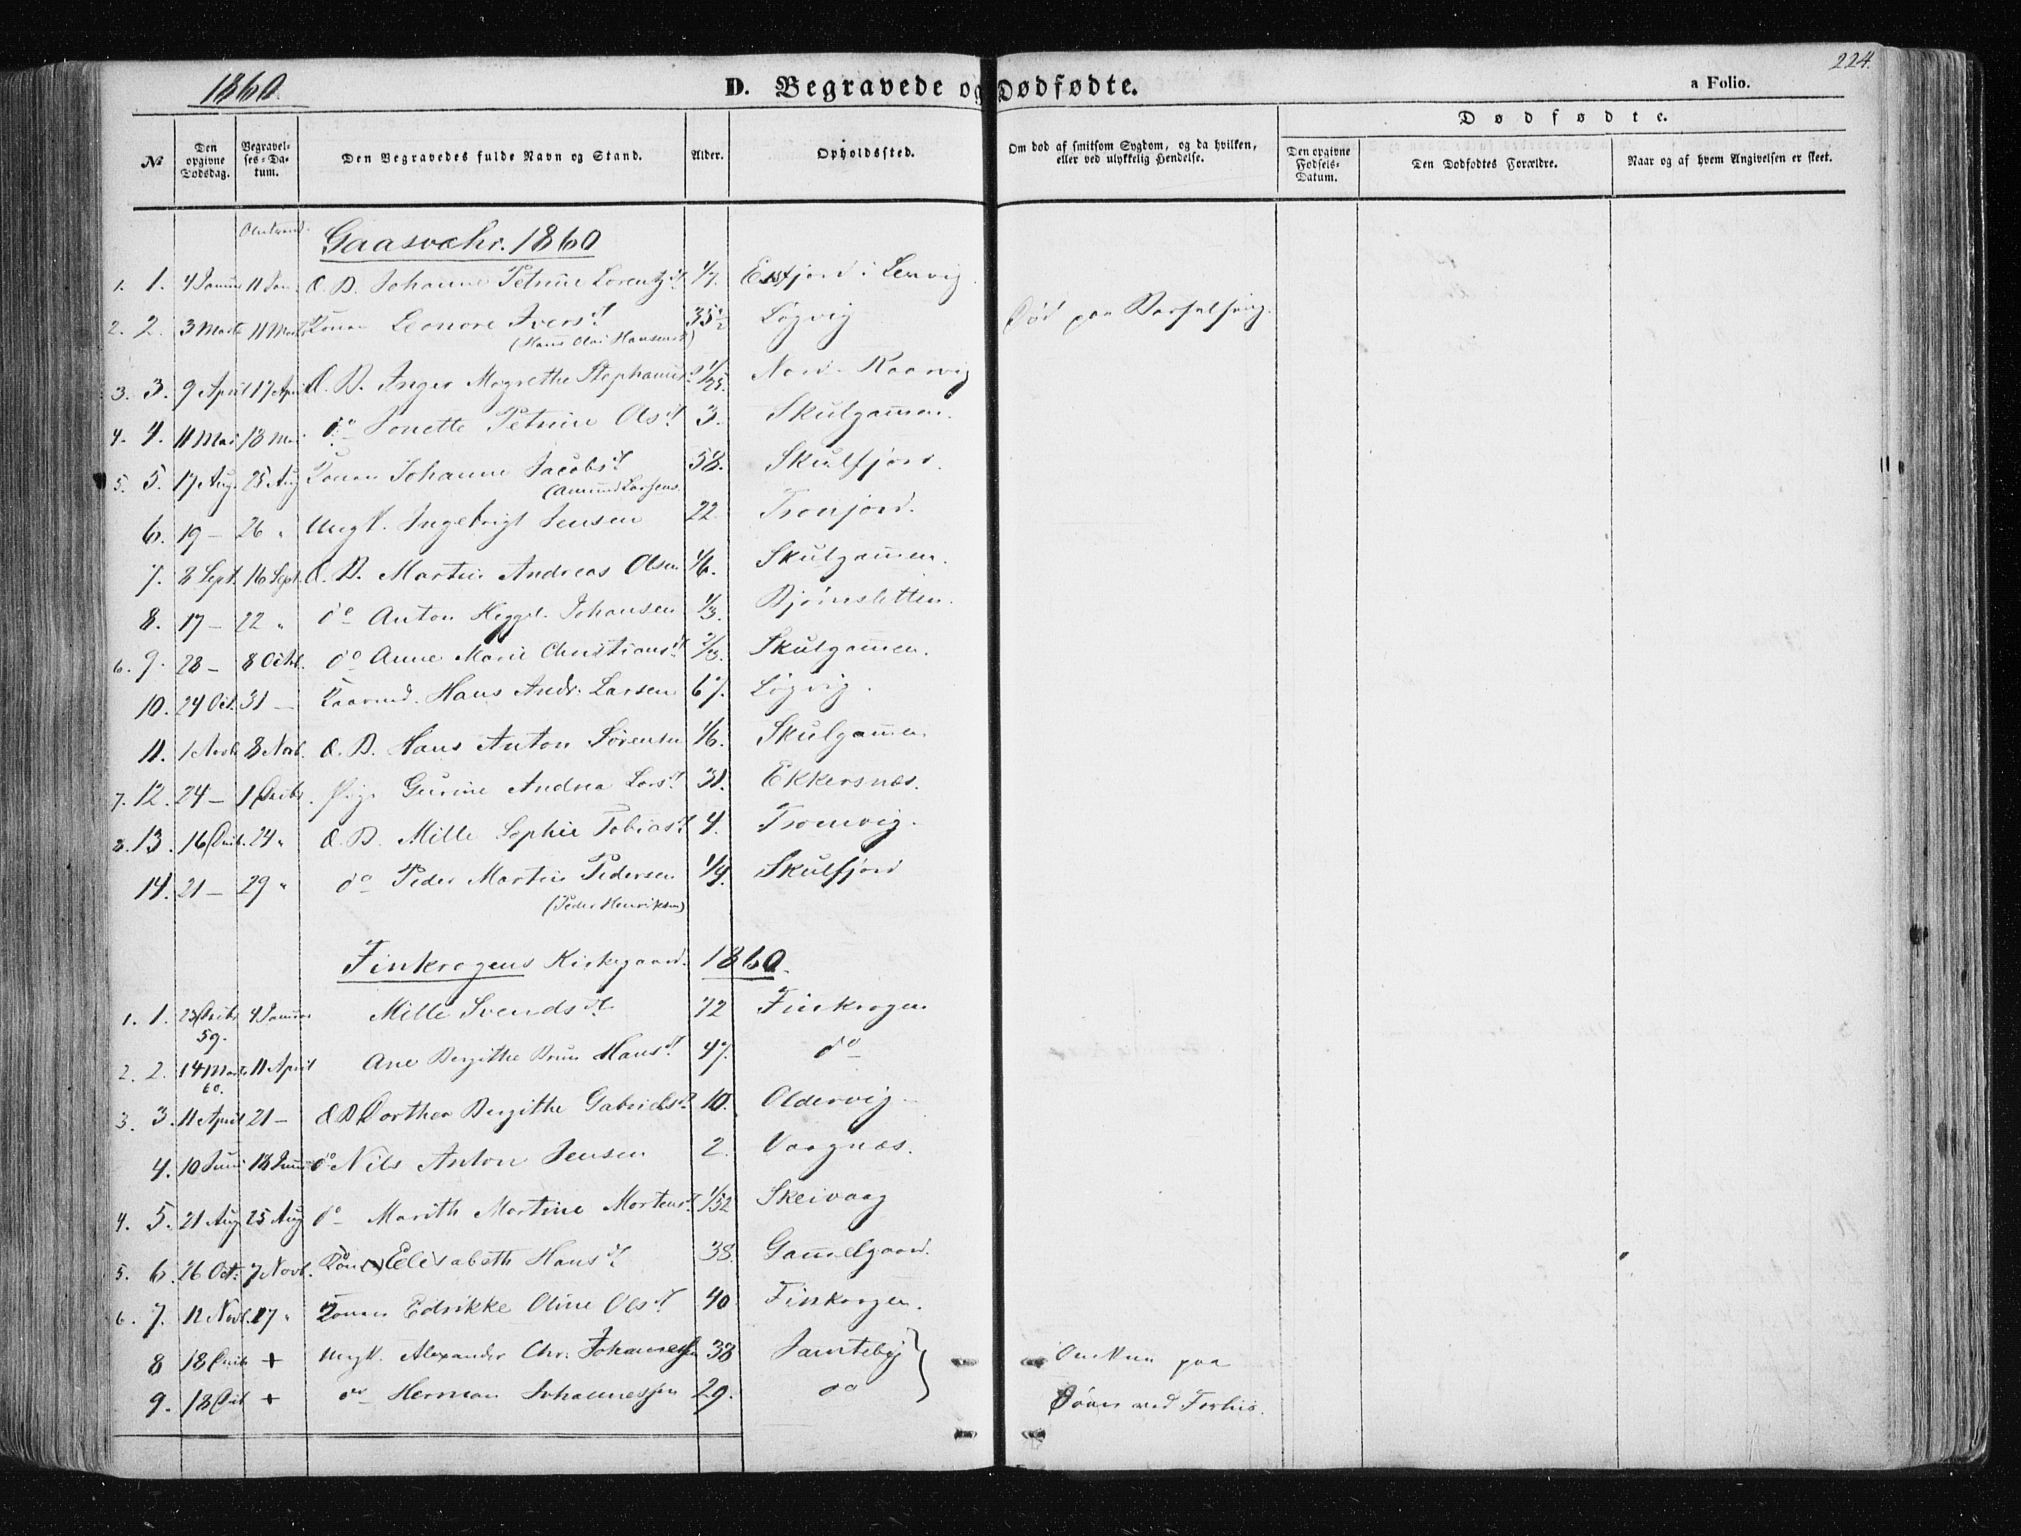 224.
1860.
D. Begravede og Dødfødte.
a Folio.
Dødfødte.
No
Den opgivne Dødsdag.
Begravel-ses-Da-tum.
Den Begravedes fulde Navn og Stand.
Alder.
Opholdssted.
Om død af smitsom Sygdom, og da hvilken, eller ved ulykkelig Hendelse.
Den opgivne Fødsels-Datum.
Den Dødfødtes Forældre.
Naar og af hvem Angivelsen er skeet.
Gaasvær. 1860
1. 1. 4 Januar 11 Jan. d. B. Johanne Petrine Lorentz d. 1/7. fjord i Lenvig.
2. 2. 3 Marts 11 Marts Konen Leonore Ivers d. 35 1/2 Løgvig Død paa Barselseng.
(Hans Olai Hansens)
3. 3. 9 April 17 April d. B. Inger Magrethe Stephanus d. 1/25. Nord-Kaarvig
4. 4. 11 Mai 18 Mai do Jonette Petrine Ols d. 3. Skulgammen.
5. 5. 17 Aug. 25 Aug Konen Johanne Jacobs d. 58. Skulfjord.
(Amund Larsens
6. 19 — 26 " Ungk. Ingebrigt Jensen 22. Tronjord.
7. 8 Sept. 16 Sept. d. B. Martin Andreas Olsen 1/6. Skulgammen.
8. 17 — 22 " do Anton Hegge. Johansen 1/3. Bjørnsletten.
6. 9. 28 — 8 Octb. do Anne Marie Christians d. 2/3. Skulgammen.
10. 24 Oct. 31 — Kaarmd. Hans Andr. Larsen 67. Løgvig.
11. 1 Novb 8 Novb. d. B. Hans Anton Sørensen 1/6. Skulgammen.
7. 12. 24 — 1 Decbr. Pige Gurine Andrea Lars d. 31. Ekkersnæs.
8. 13. 16 Decb. 24 " d. B. Mille Sophie Tobias d. 4. Tromvig.
14. 21 — 29 " do Peder Martin Pedersen 1/4. Skulfjord
(Peder Henriksen)
Finkrogens Kirkegaard. 1860.
1. 1. 23 Decbr 59. 4 Januar Mille Svends d. 72 Finkrogen
2. 2. 14 Marts 60. 11 April Ane Bergithe Brun Hans d. 47. do
3. 3. 11 April 21 — d. B. Dorthea Bergithe Gabriels d. 10. Oldervig
4. 10 Juni 18 Juni do Nils Anton Jensen 2. Vaagnæs.
4. 5. 21 Aug 25 Aug do Marith Martine Mortens d. 1/52 Skeivaag
5. 6. 26 Oct. 7 Novb. Konen Elisabeth Hans d. 38. Gammelgaard.
6. 7. 12 Novb. 17 " Konen Edrikke Oline Ols d. 40 Finkrogen.
8 18 Decbr + Ungk. Alexander Chr. Johannessen 38 Jamteby } Omkom paa
9. 18 Decb + do Herman Johannessen 29. do Søen ved Forlis.